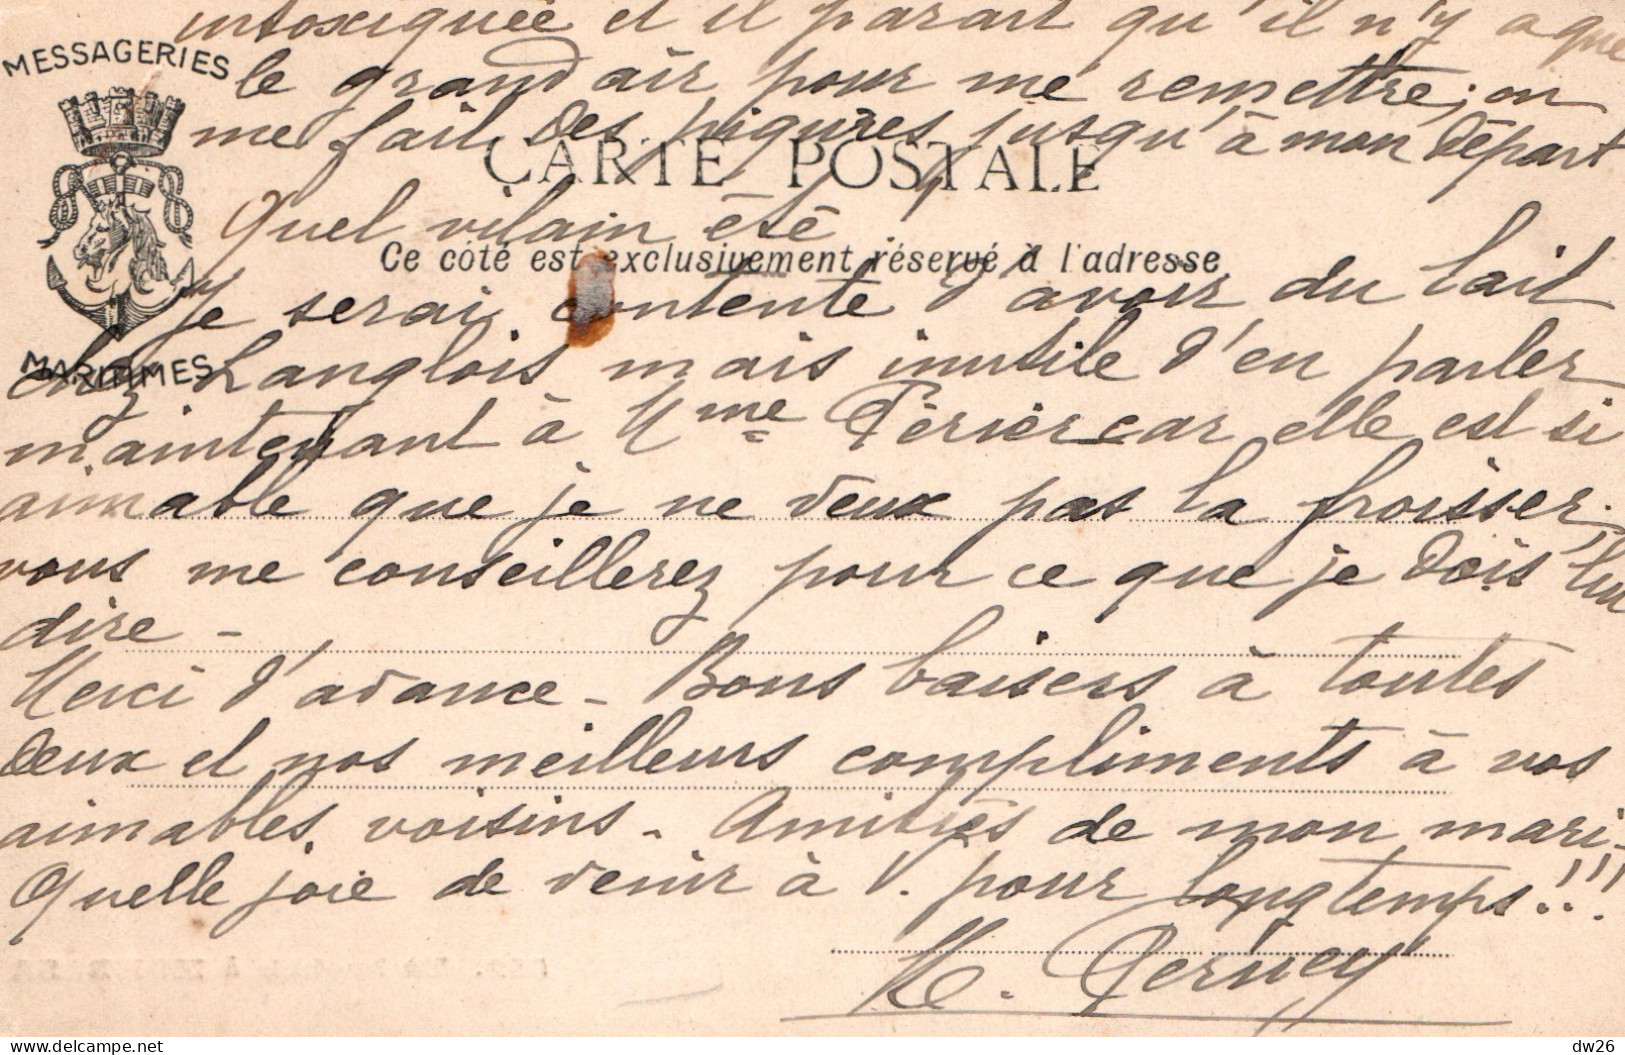 intoxiquée et il parait qu'il n'y a que
MESSAGERIES
le grand air pour me remettre; on
me fait des piqures jusqu'à mon départ
CARTE POSTALE
Quel vilain été
Ce côté est exclusivement réservé à l'adresse
Je serai contente d'avoir du lait
MARITIMES
chez Langlois mais inutile d'en parler
maintenant à Mme Périer car elle est si
aimable que je ne veux pas la froisser;
vous me conseillerez pour ce que je dois lui
dire -
Merci d'avance - Bons baisers à toutes
deux et nos meilleurs compliments à vos
aimables voisins - Amitiés de mon mari -
Quelle joie de venir à V. pour longtemps!!!
dw26